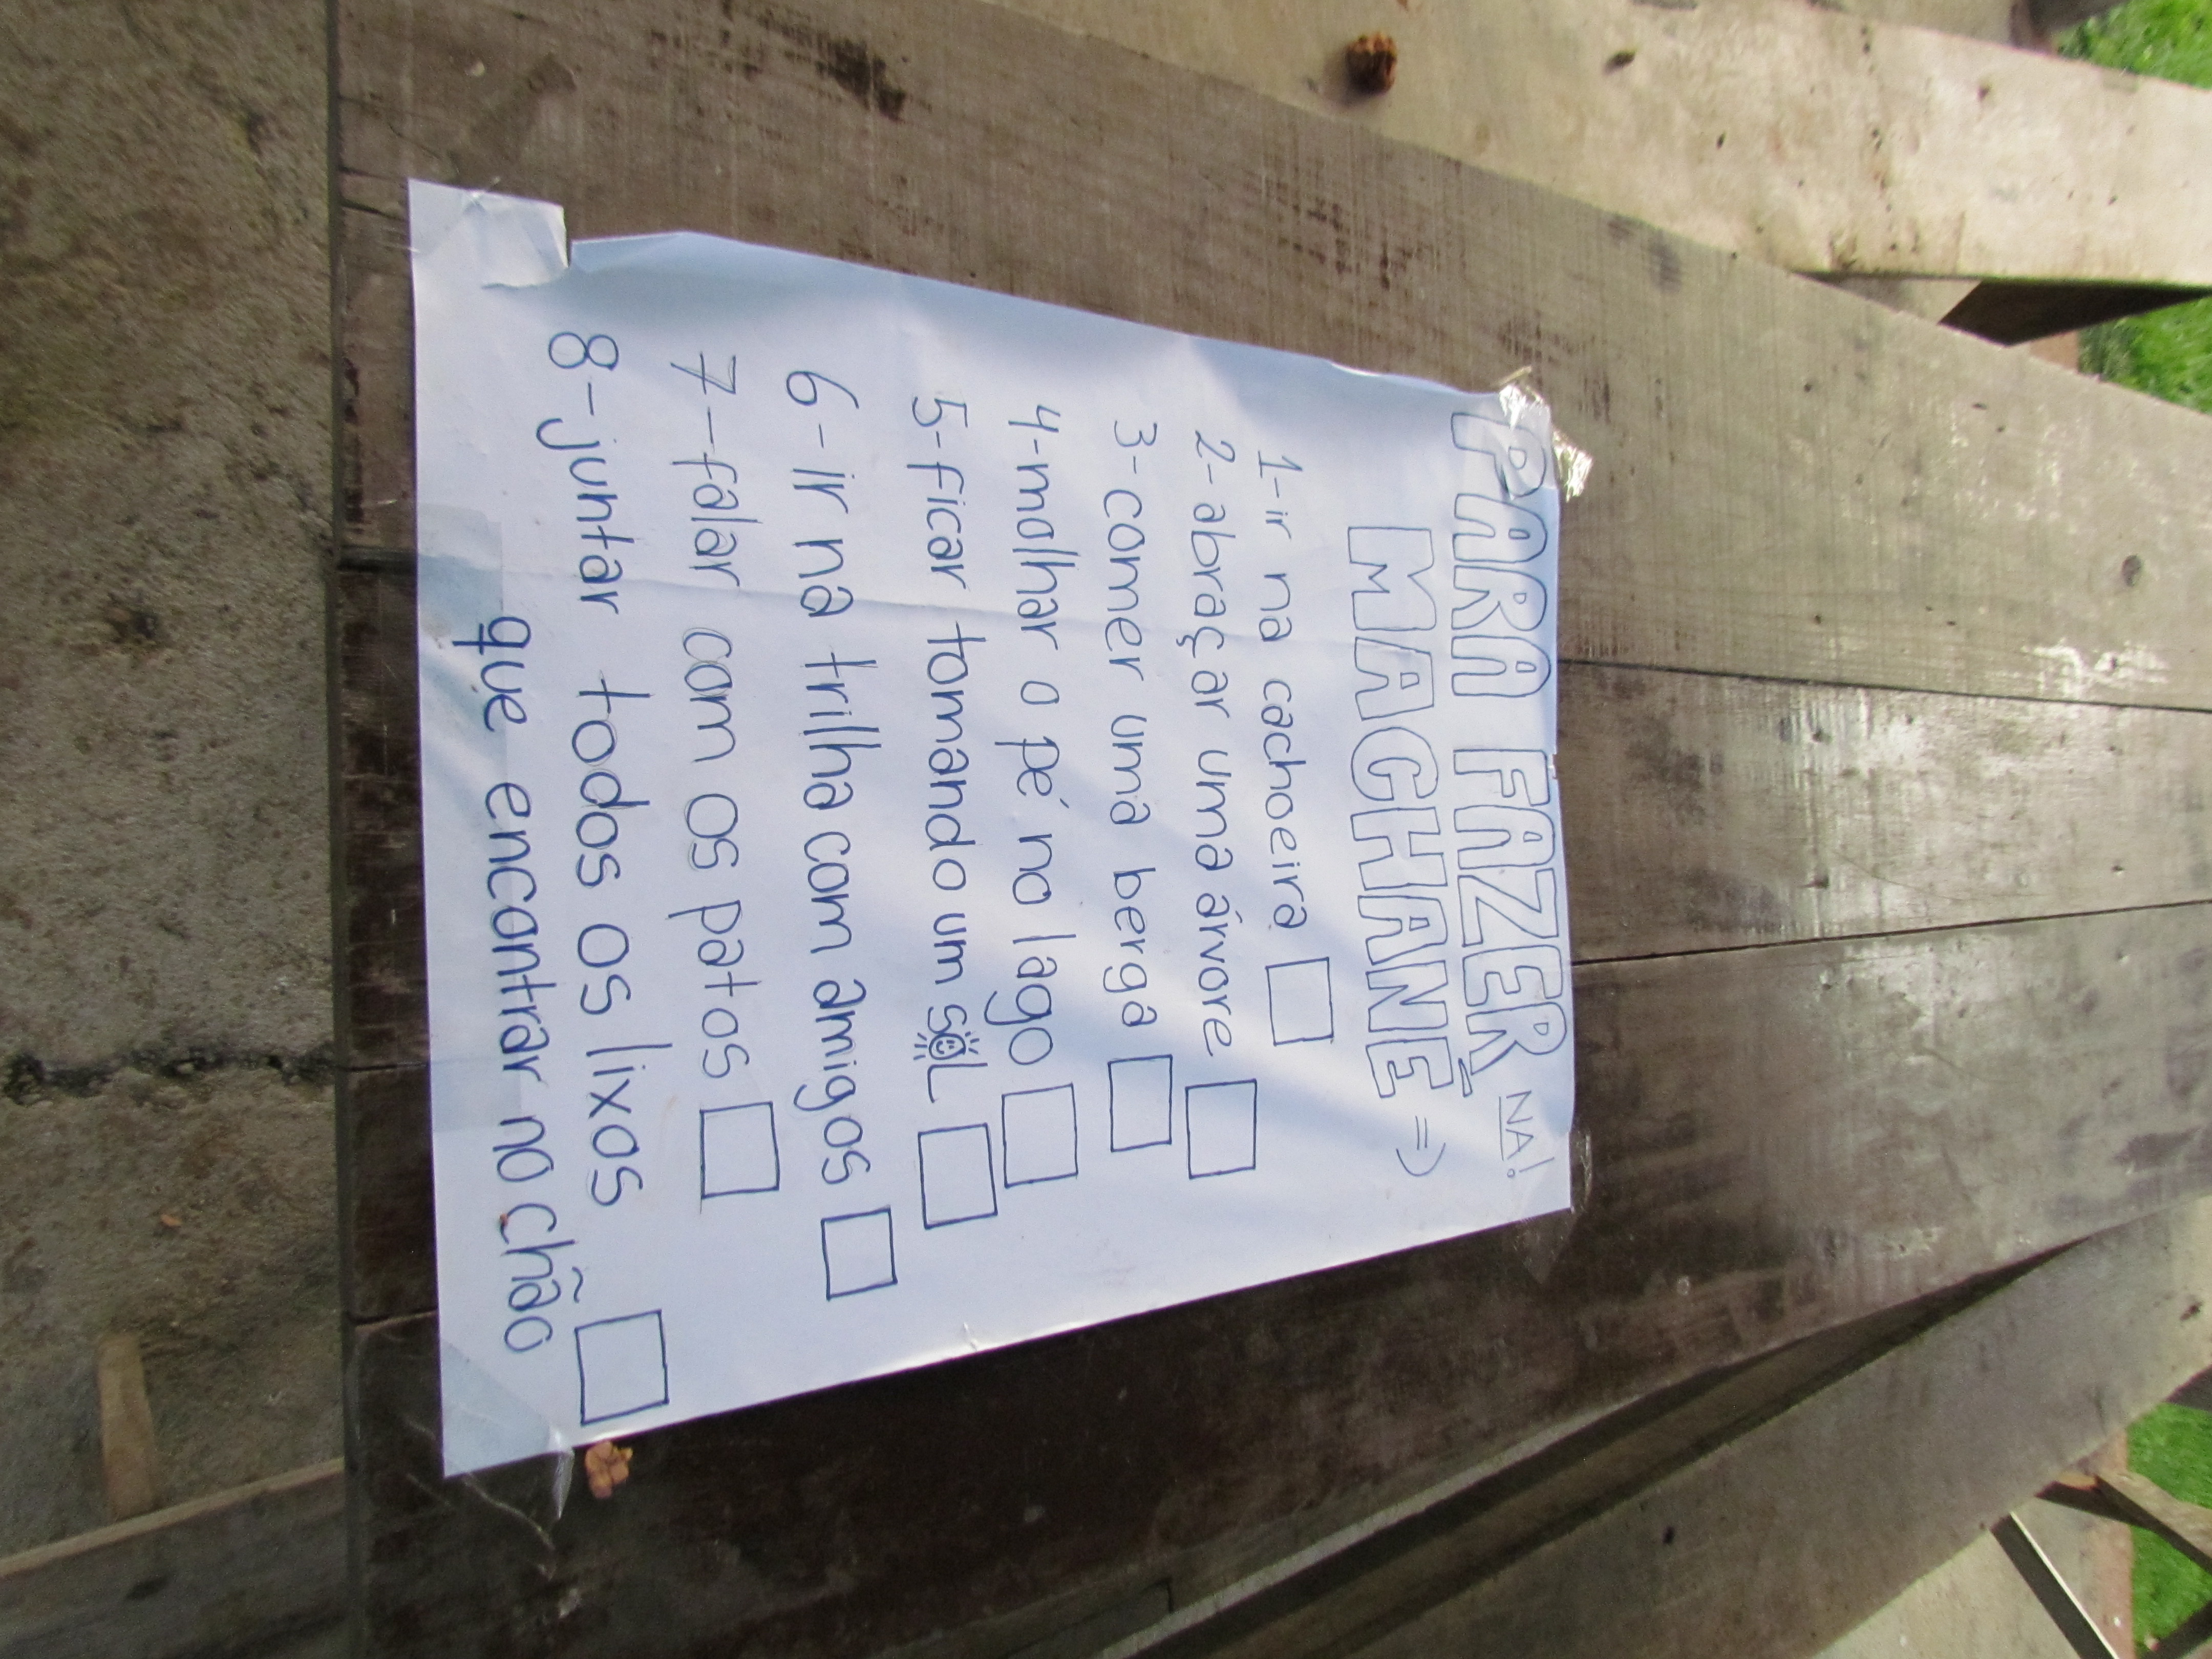 PARA FAZER NA!
MACHANÉ =)
1-ir na cachoeira
2-abraçar uma árvore
3-comer uma berga
4-molhar o pé no lago
5-ficar tomando um SOL
6-ir na trilha com amigos
7-falar com os patos
8-juntar todos os lixos
que encontrar no chão